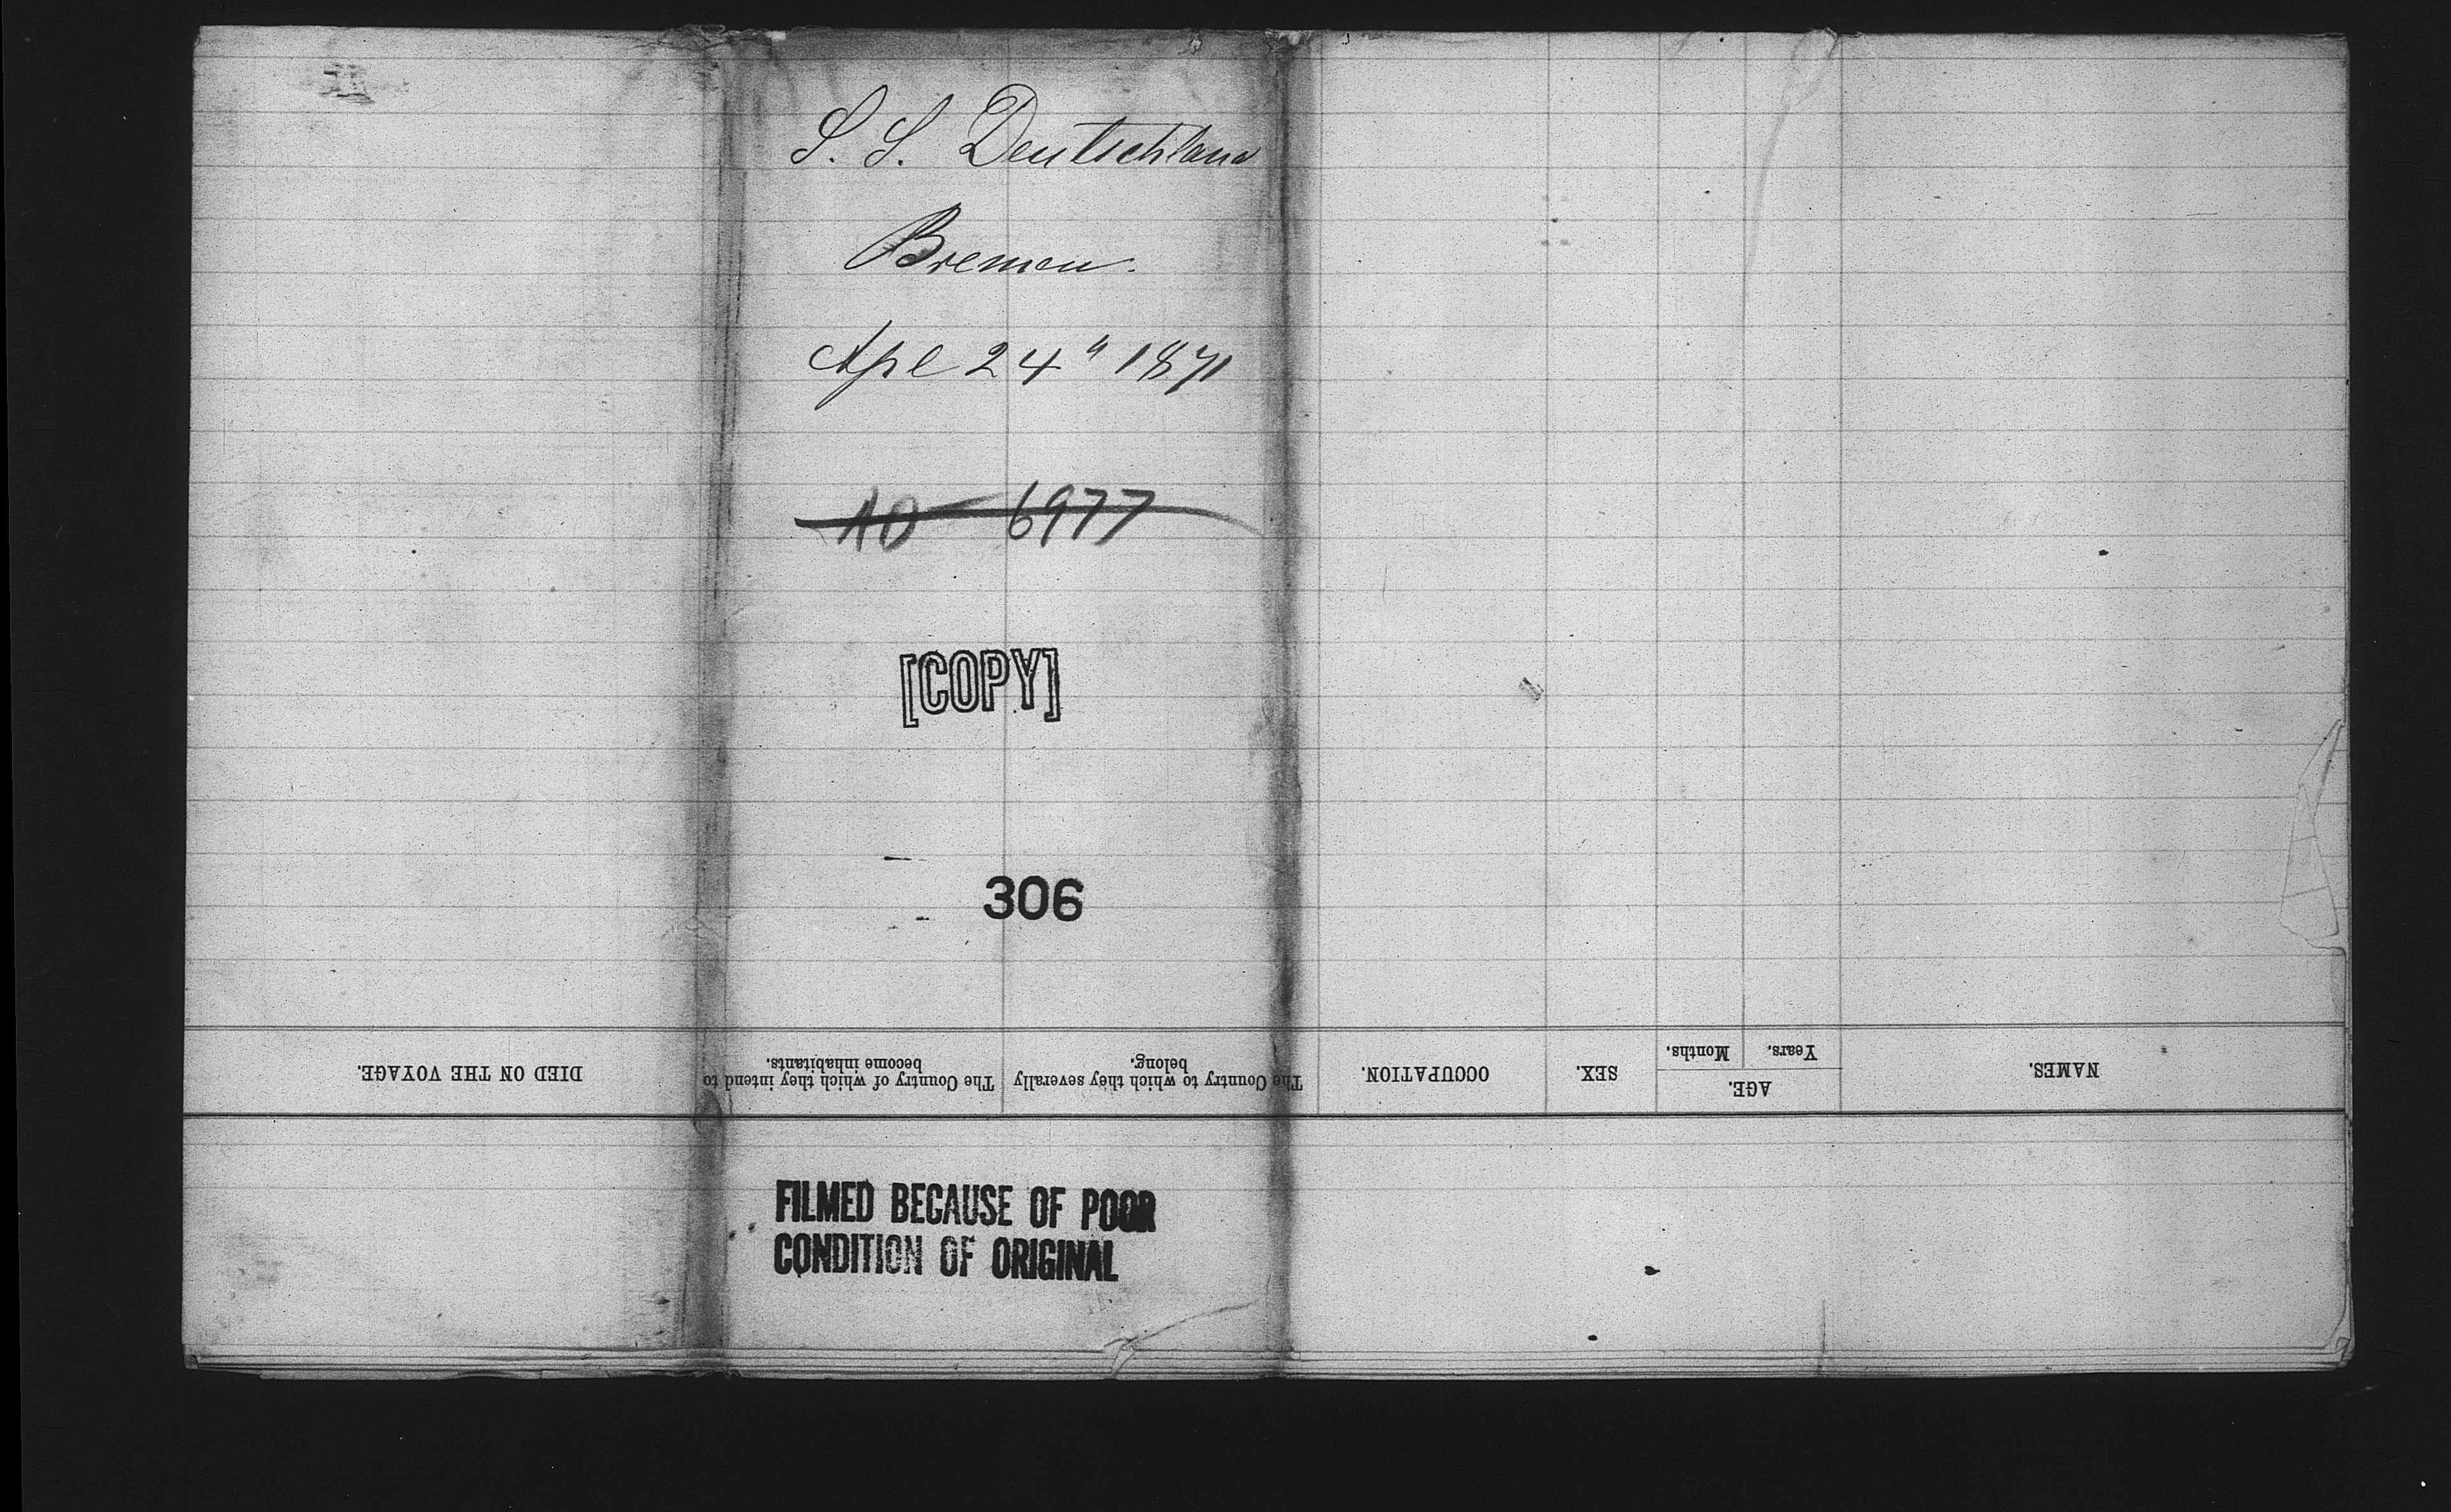 S. S. Deutschland
Bremen.
Apl 24" 1871
AD 6977
[COPY]
306
DIED ON THE VOYAGE.
The Country of which they intend to
become inhabitants.
The Country to which they severally
belong.
OCCUPATION.
SEX.
AGE.
Months.
Years.
NAMES.
FILMED BECAUSE OF POOR
CONDITION OF ORIGINAL